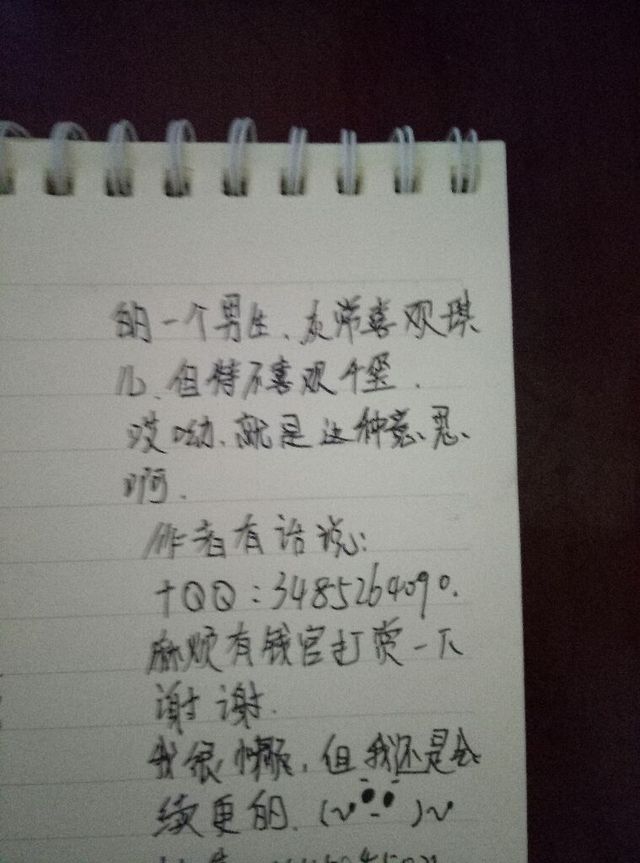 的一个男生、灰常喜欢琪
儿、但特不喜欢千玺.
哎呦、就是这种意、思、
啊.
作者有话说:
+QQ:3485264090.
麻烦有钱官打赏一下
谢谢.
我很懒, 但我还是会
续更的. (~ ●-● )~